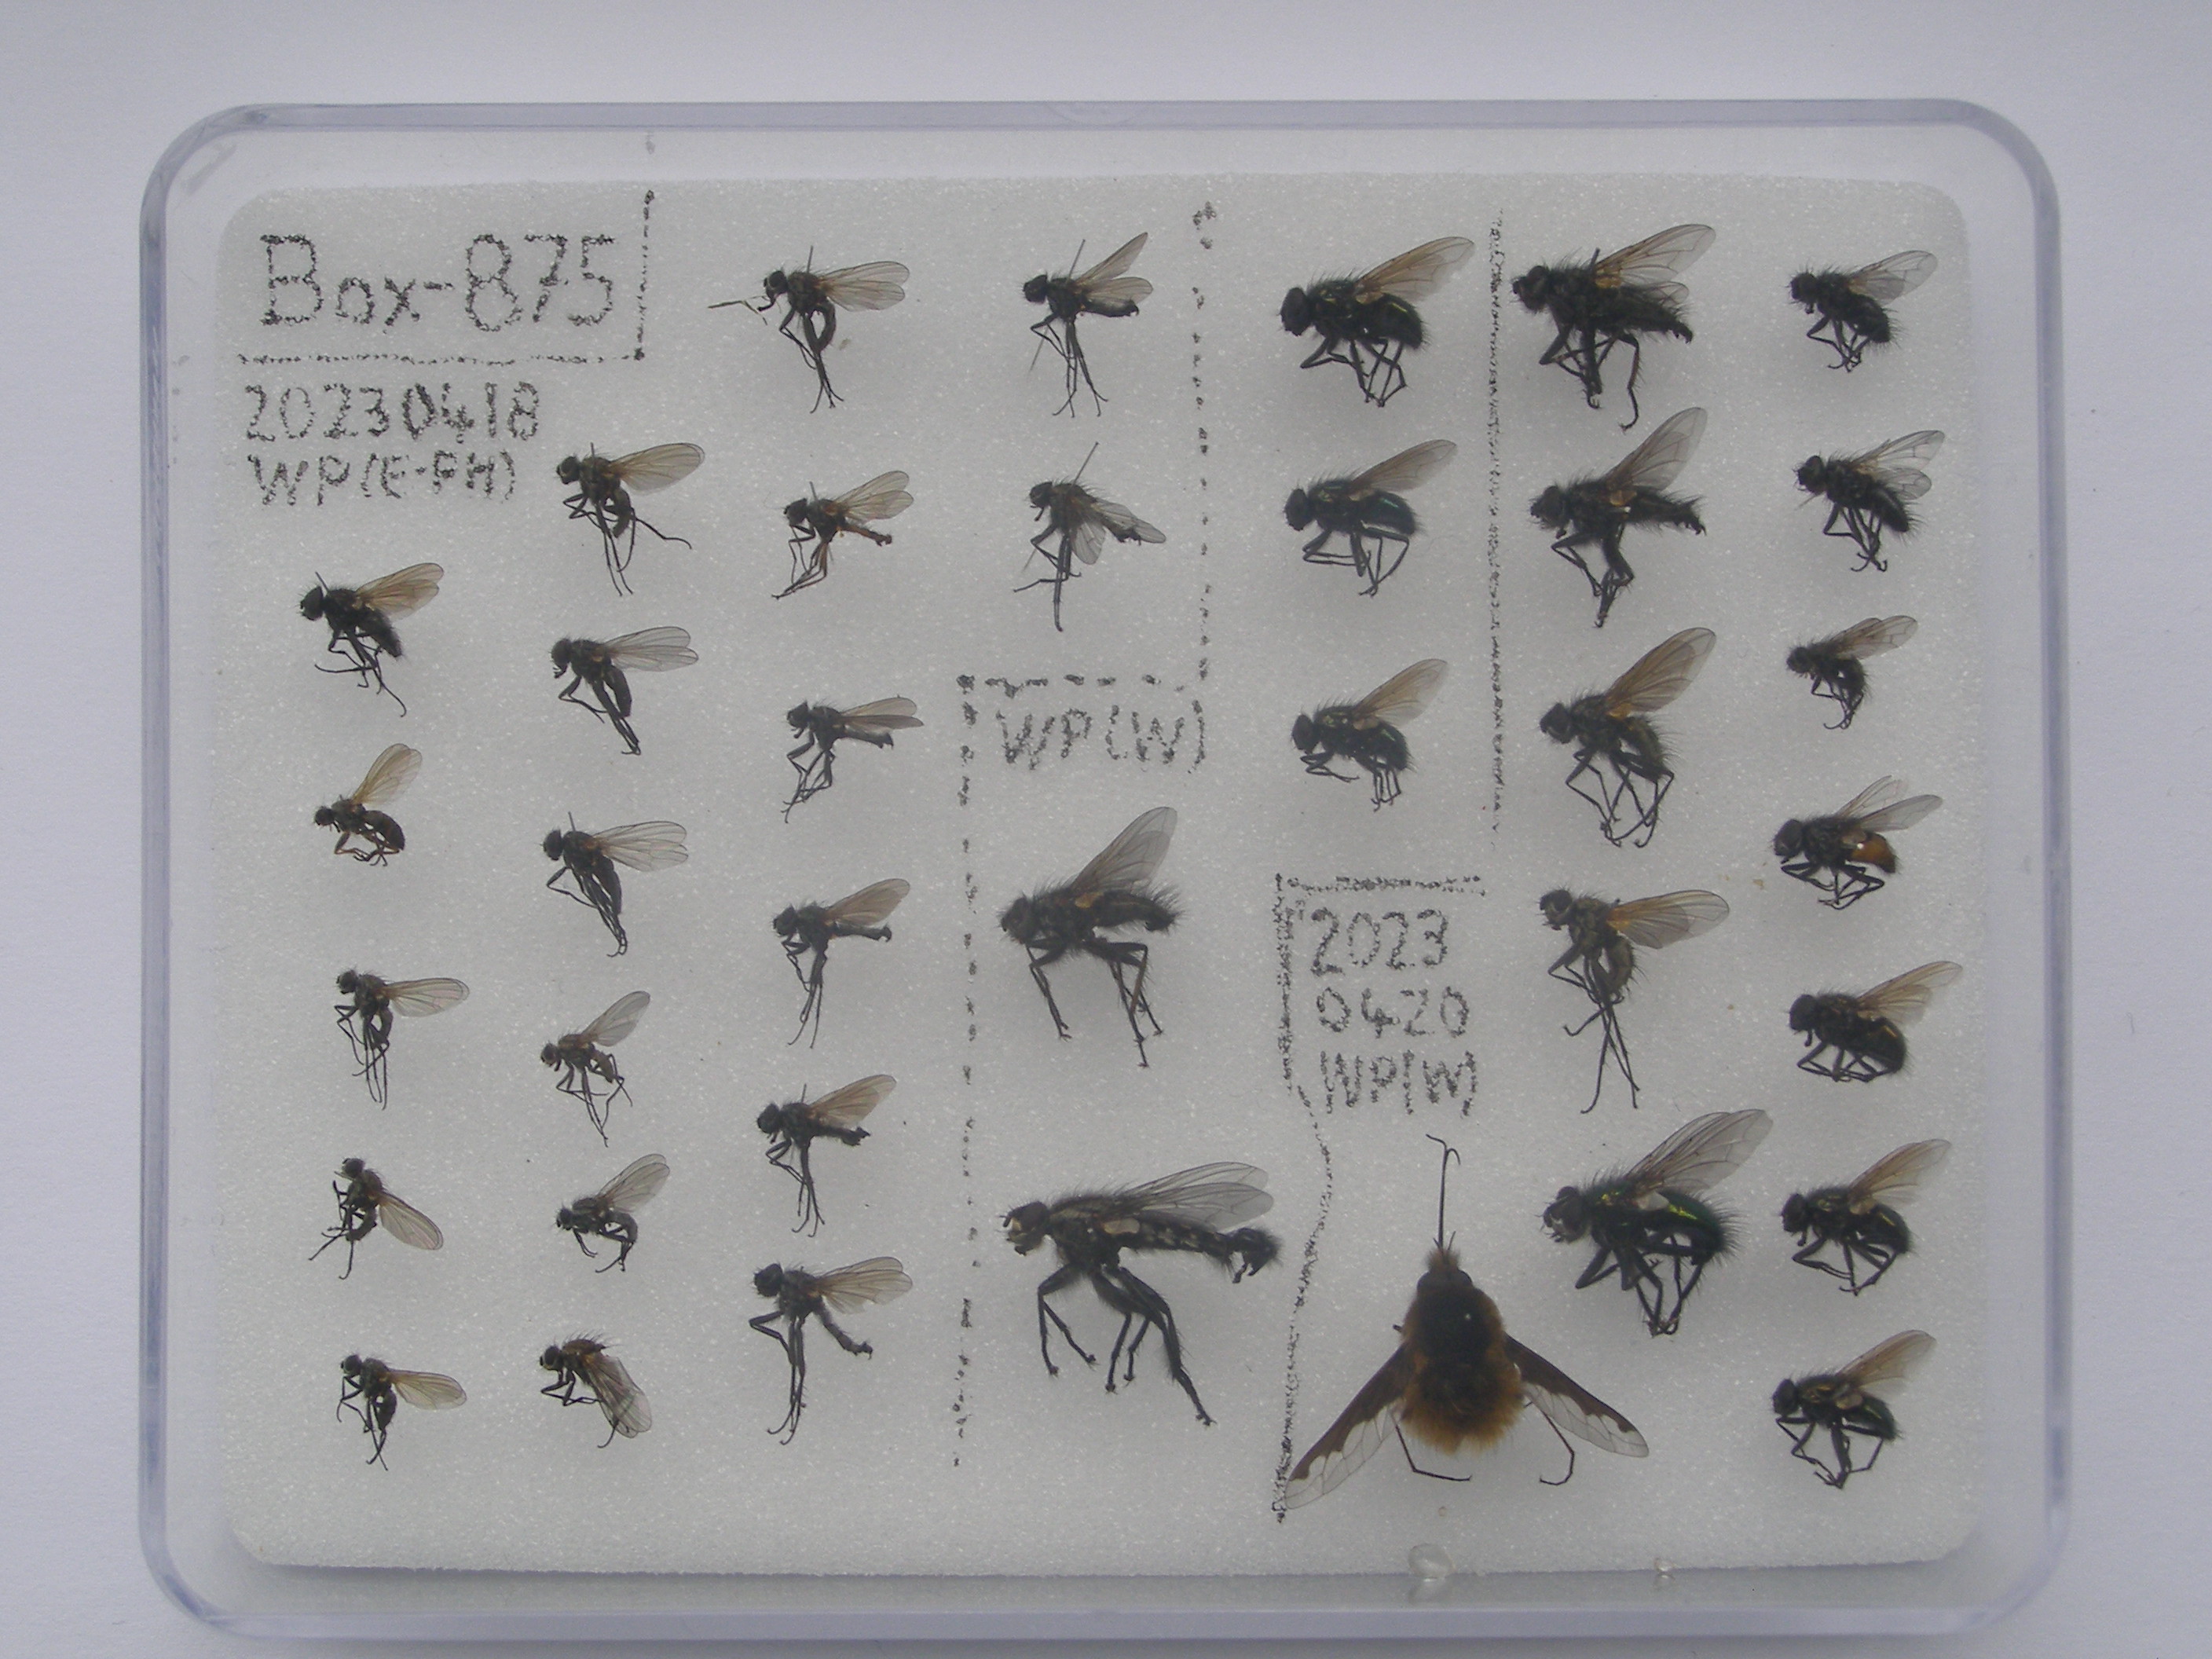 Box-875
20230418
WP(E-PH)
WP(W)
2023
0420
WP(W)